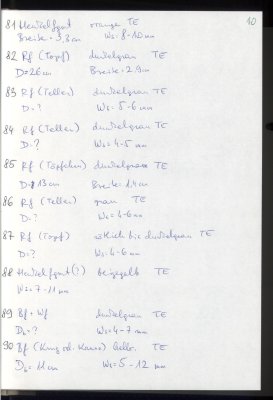 10
81 Henkelfgmt orange TE
Breite = 3,3 cm Ws = 8-10 mm
82 Rf (Topf) dunkelgrau TE
D = 26 cm Breite = 2,9 cm
83 Rf (Teller) dunkelgrau TE
D = ? Ws = 5-6 mm
84 Rf (Teller) dunkelgrau TE
D = ? Ws = 4-5 mm
85 Rf (Töpfchen) dunkelgrau TE
D = 13 cm Breite = 1,4 cm
86 Rf (Teller) grau TE
D = ? Ws = 4-6 mm
87 Rf (Topf) rötlich bis dunkelgrau TE
D = ? Ws = 4-6 mm
88 Henkelfgmt (?) beigegelb TE
Ws = 7-11 mm
89 Bf + Wf dunkelgrau TE
Db = ? Ws = 4-7 mm
90 Bf (Krug od. Kanne) TE
Db = 11 cm Ws = 5-12 mm